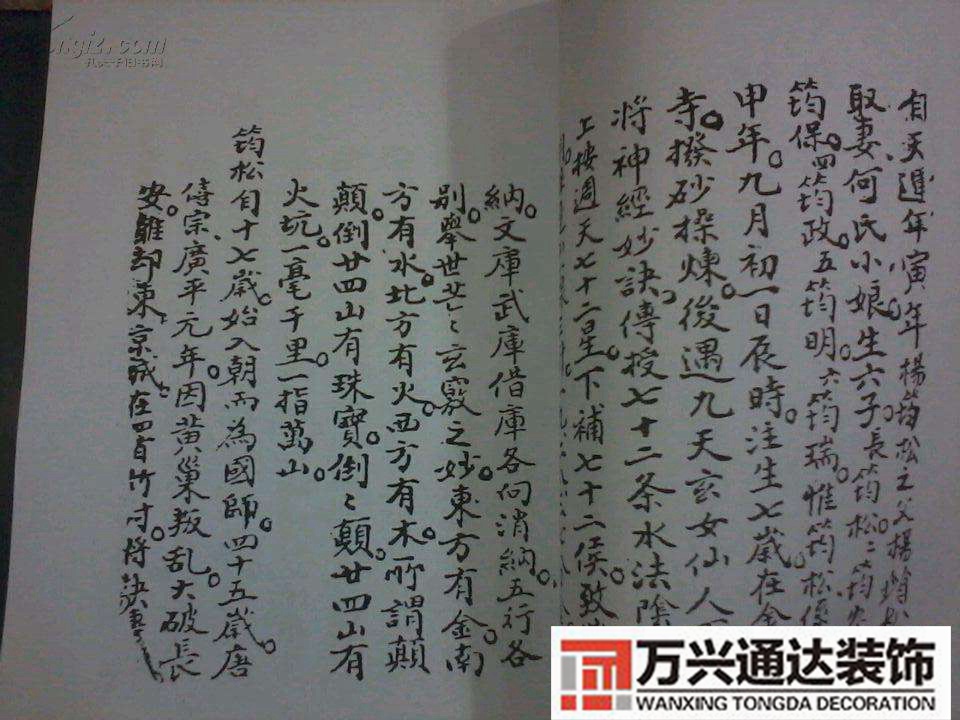 自天遁年寅年楊筠松之父楊
取妻何氏小娘生六子長筠松二筠
筠保四筠政五筠明六筠瑞惟筠松
甲年九月初一日辰時注生七歲在金
寺撥砂操煉後遇九天玄女仙人
將神經妙訣傳授七十二条水法陰
上按週天七十二星下補七十二侯致
納文庫武庫借庫各向消納五行各
别舉世茫〻玄竅之妙東方有金南
方有水北方有火西方有木所謂顛
顛倒廿四山有珠寶倒〻顛廿四山有
火坑一毫千里一指萬山
筠松自十七歲始入朝而為國師四十五歲唐
僖宗廣平元年因黃巢叛乱大破長
安離却東京城在四百竹寸將訣
孔夫子旧书网
万兴通达装饰
WANXING TONGDA DECORATION